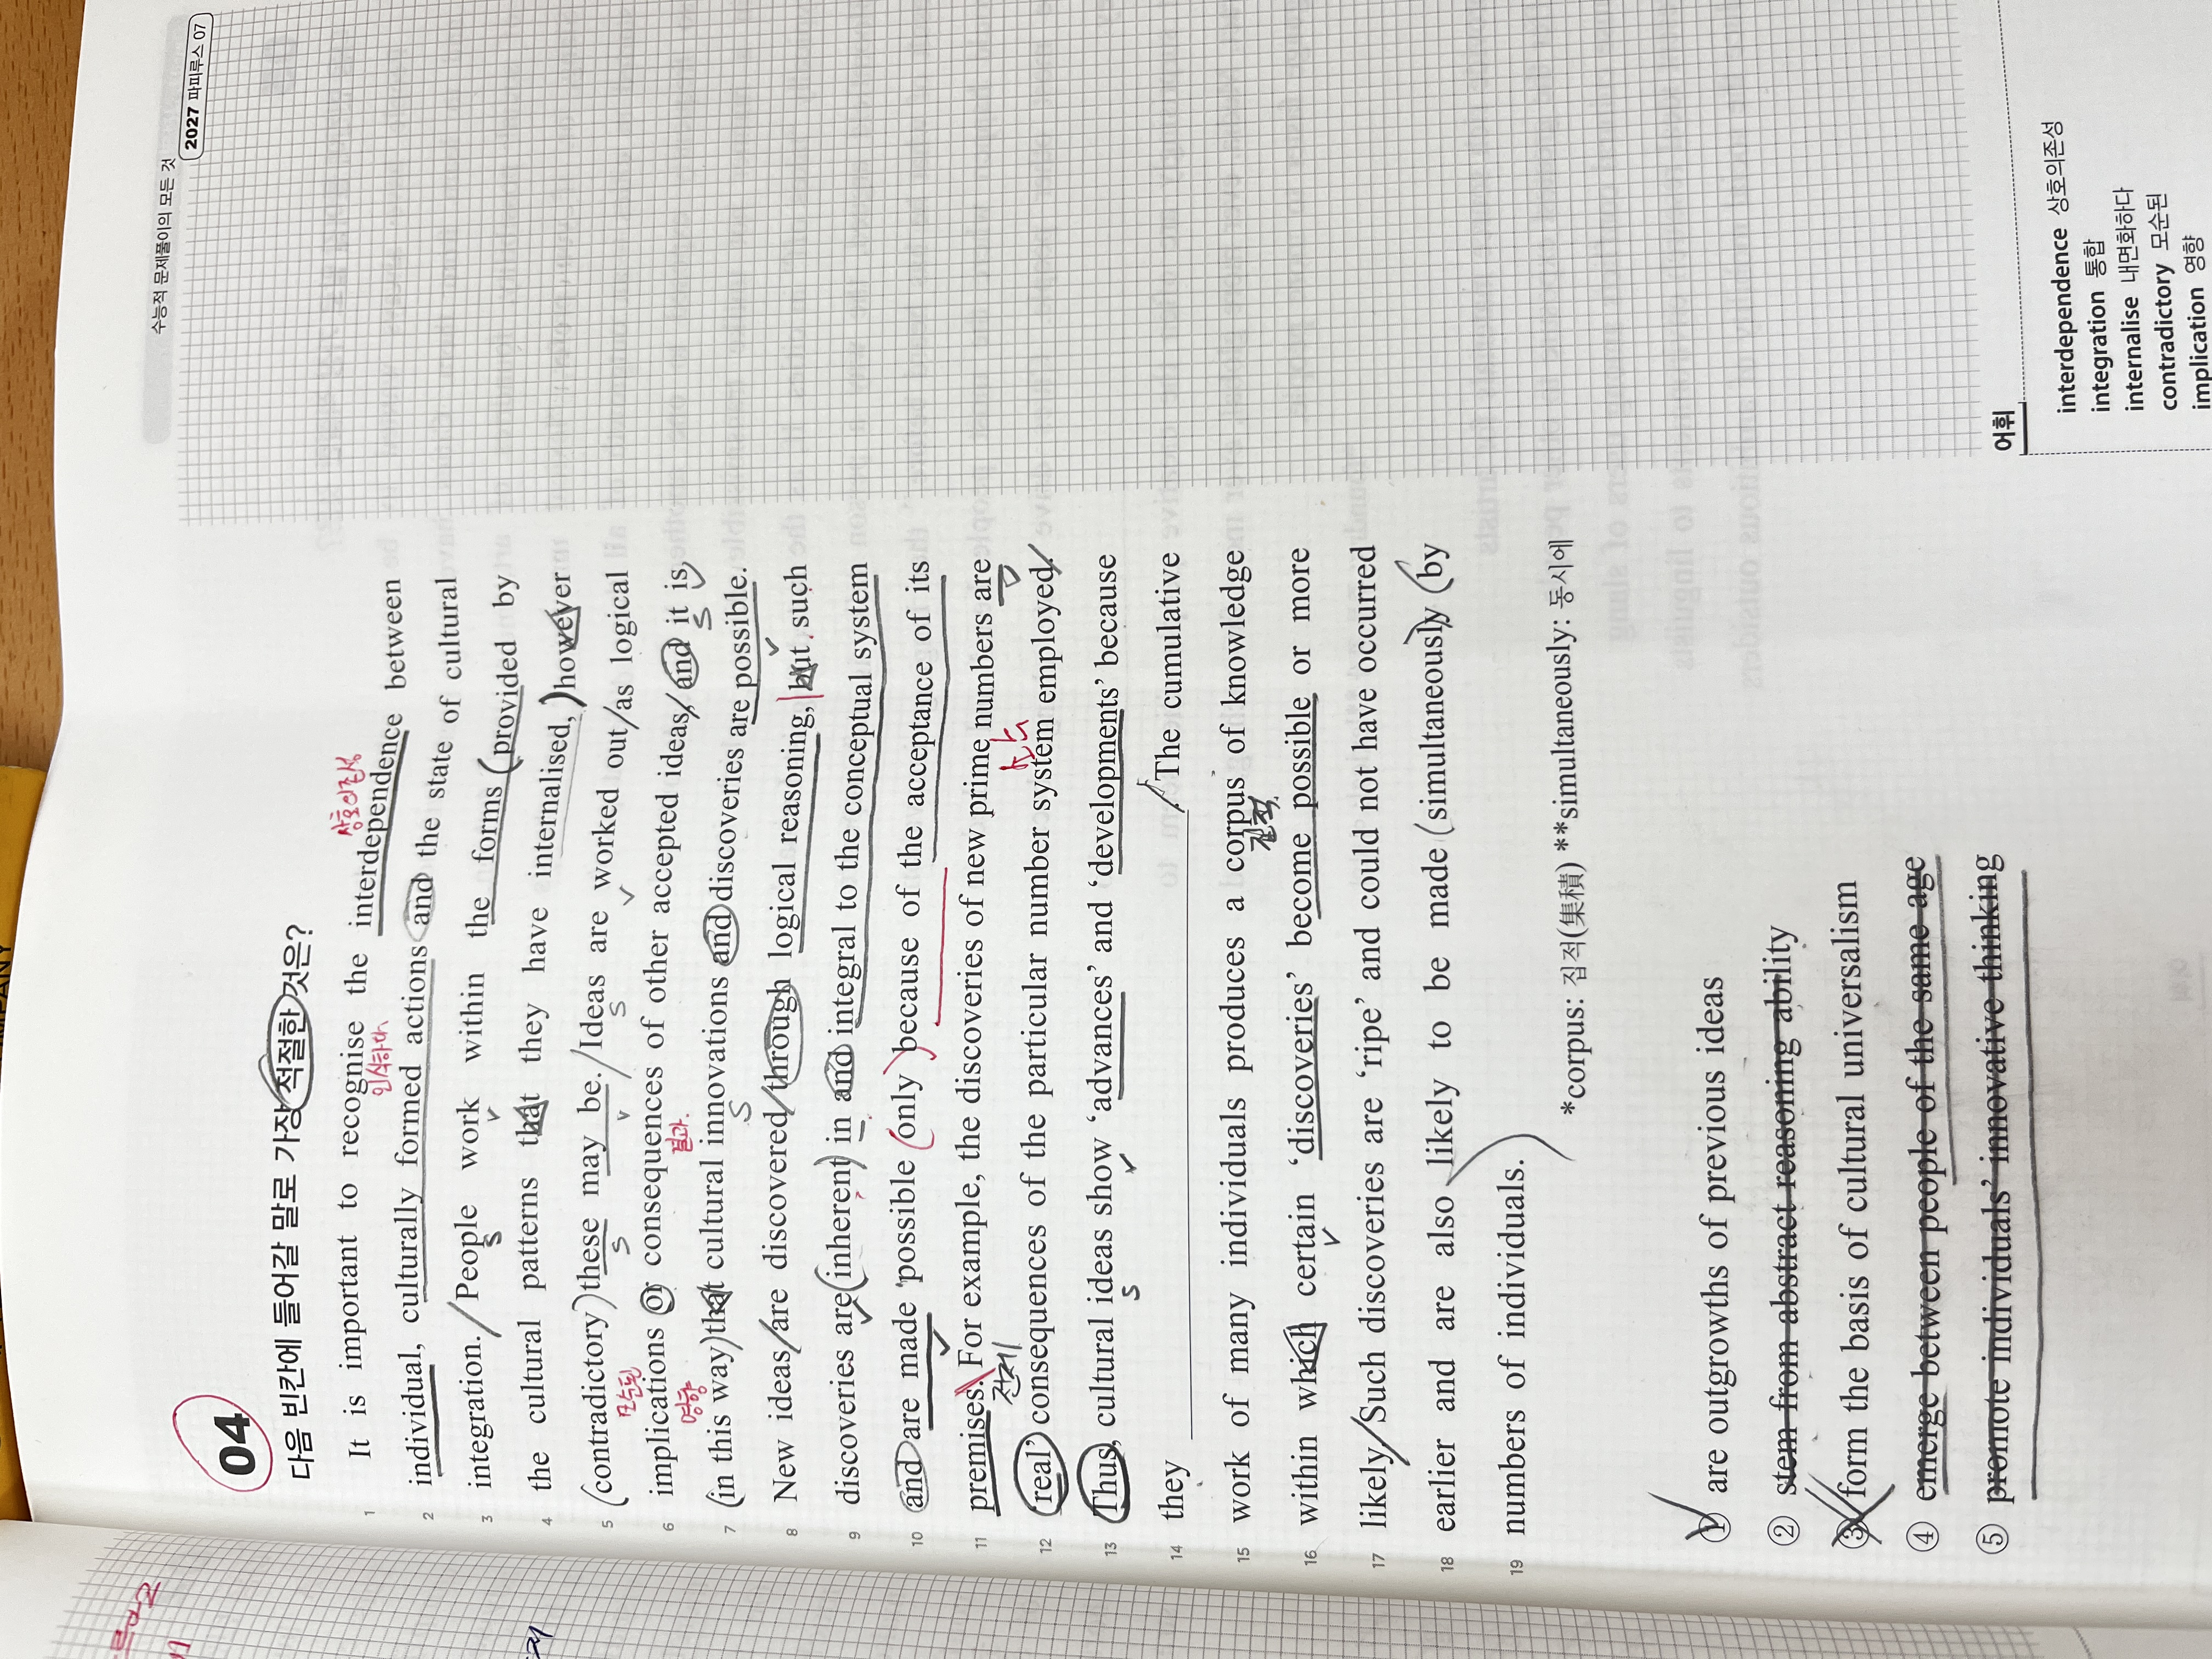 수능적 문제풀이의 모든 것
2027 파피루스 07
04
다음 빈칸에 들어갈 말로 가장 적절한 것은?
상호의존성
1 It is important to recognise the interdependence between
인식하다
2 individual, culturally formed actions and the state of cultural
3 integration. / People work within the forms (provided by
s v
4 the cultural patterns that they have internalised,) however
5 (contradictory) these may be. / Ideas are worked out / as logical
모순된 s v s v
6 implications or consequences of other accepted ideas, / and it is,
영향 결과 s v
7 (in this way) that cultural innovations and discoveries are possible.
s v
8 New ideas / are discovered / through logical reasoning, but such
9 discoveries are (inherent) in and integral to the conceptual system
10 and are made possible (only) because of the acceptance of its
11 premises. For example, the discoveries of new prime numbers are
전제
12 'real' consequences of the particular number system employed.
13 Thus, cultural ideas show 'advances' and 'developments' because
s v
14 they ______. The cumulative
15 work of many individuals produces a corpus of knowledge
집적
16 within which certain 'discoveries' become possible or more
v
17 likely. / Such discoveries are 'ripe' and could not have occurred
18 earlier and are also likely to be made (simultaneously) (by
19 numbers of individuals.
*corpus: 집적(集積) **simultaneously: 동시에
① are outgrowths of previous ideas
② stem from abstract reasoning ability
③ form the basis of cultural universalism
④ emerge between people of the same age
⑤ promote individuals' innovative thinking
어휘
interdependence 상호의존성
integration 통합
internalise 내면화하다
contradictory 모순된
implication 영향